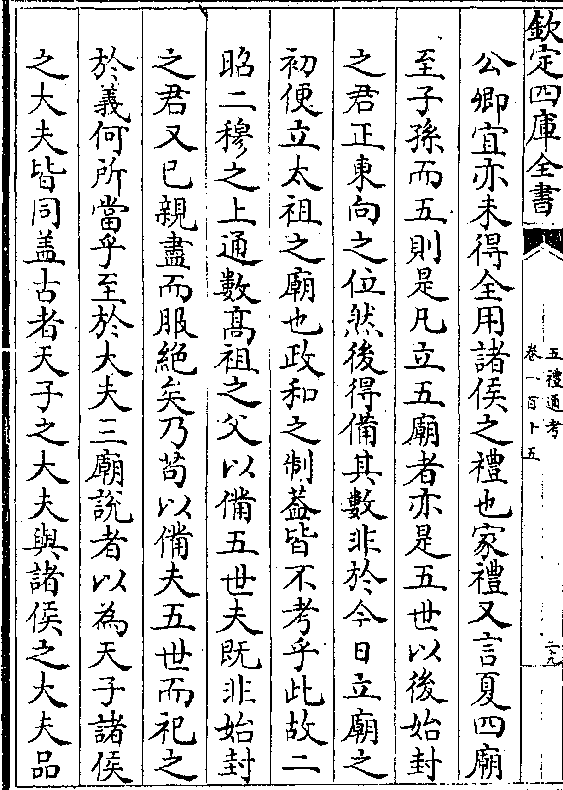 欽定四庫全書
五禮通考
卷一百十五
二十九
公卿宜亦未得全用諸侯之禮也家禮又言夏四廟
至子孫而五則是凡立五廟者亦是五世以後始封
之君正東向之位然後得備其數非於今日立廟之
初便立太祖之廟也政和之制葢皆不考乎此故二
昭二穆之上通數高祖之父以備五世夫既非始封
之君又已親盡而服絶矣乃苟以備夫五世而祀之
於義何所當乎至於大夫三廟説者以為天子諸侯
之大夫皆同盖古者天子之大夫與諸侯之大夫品